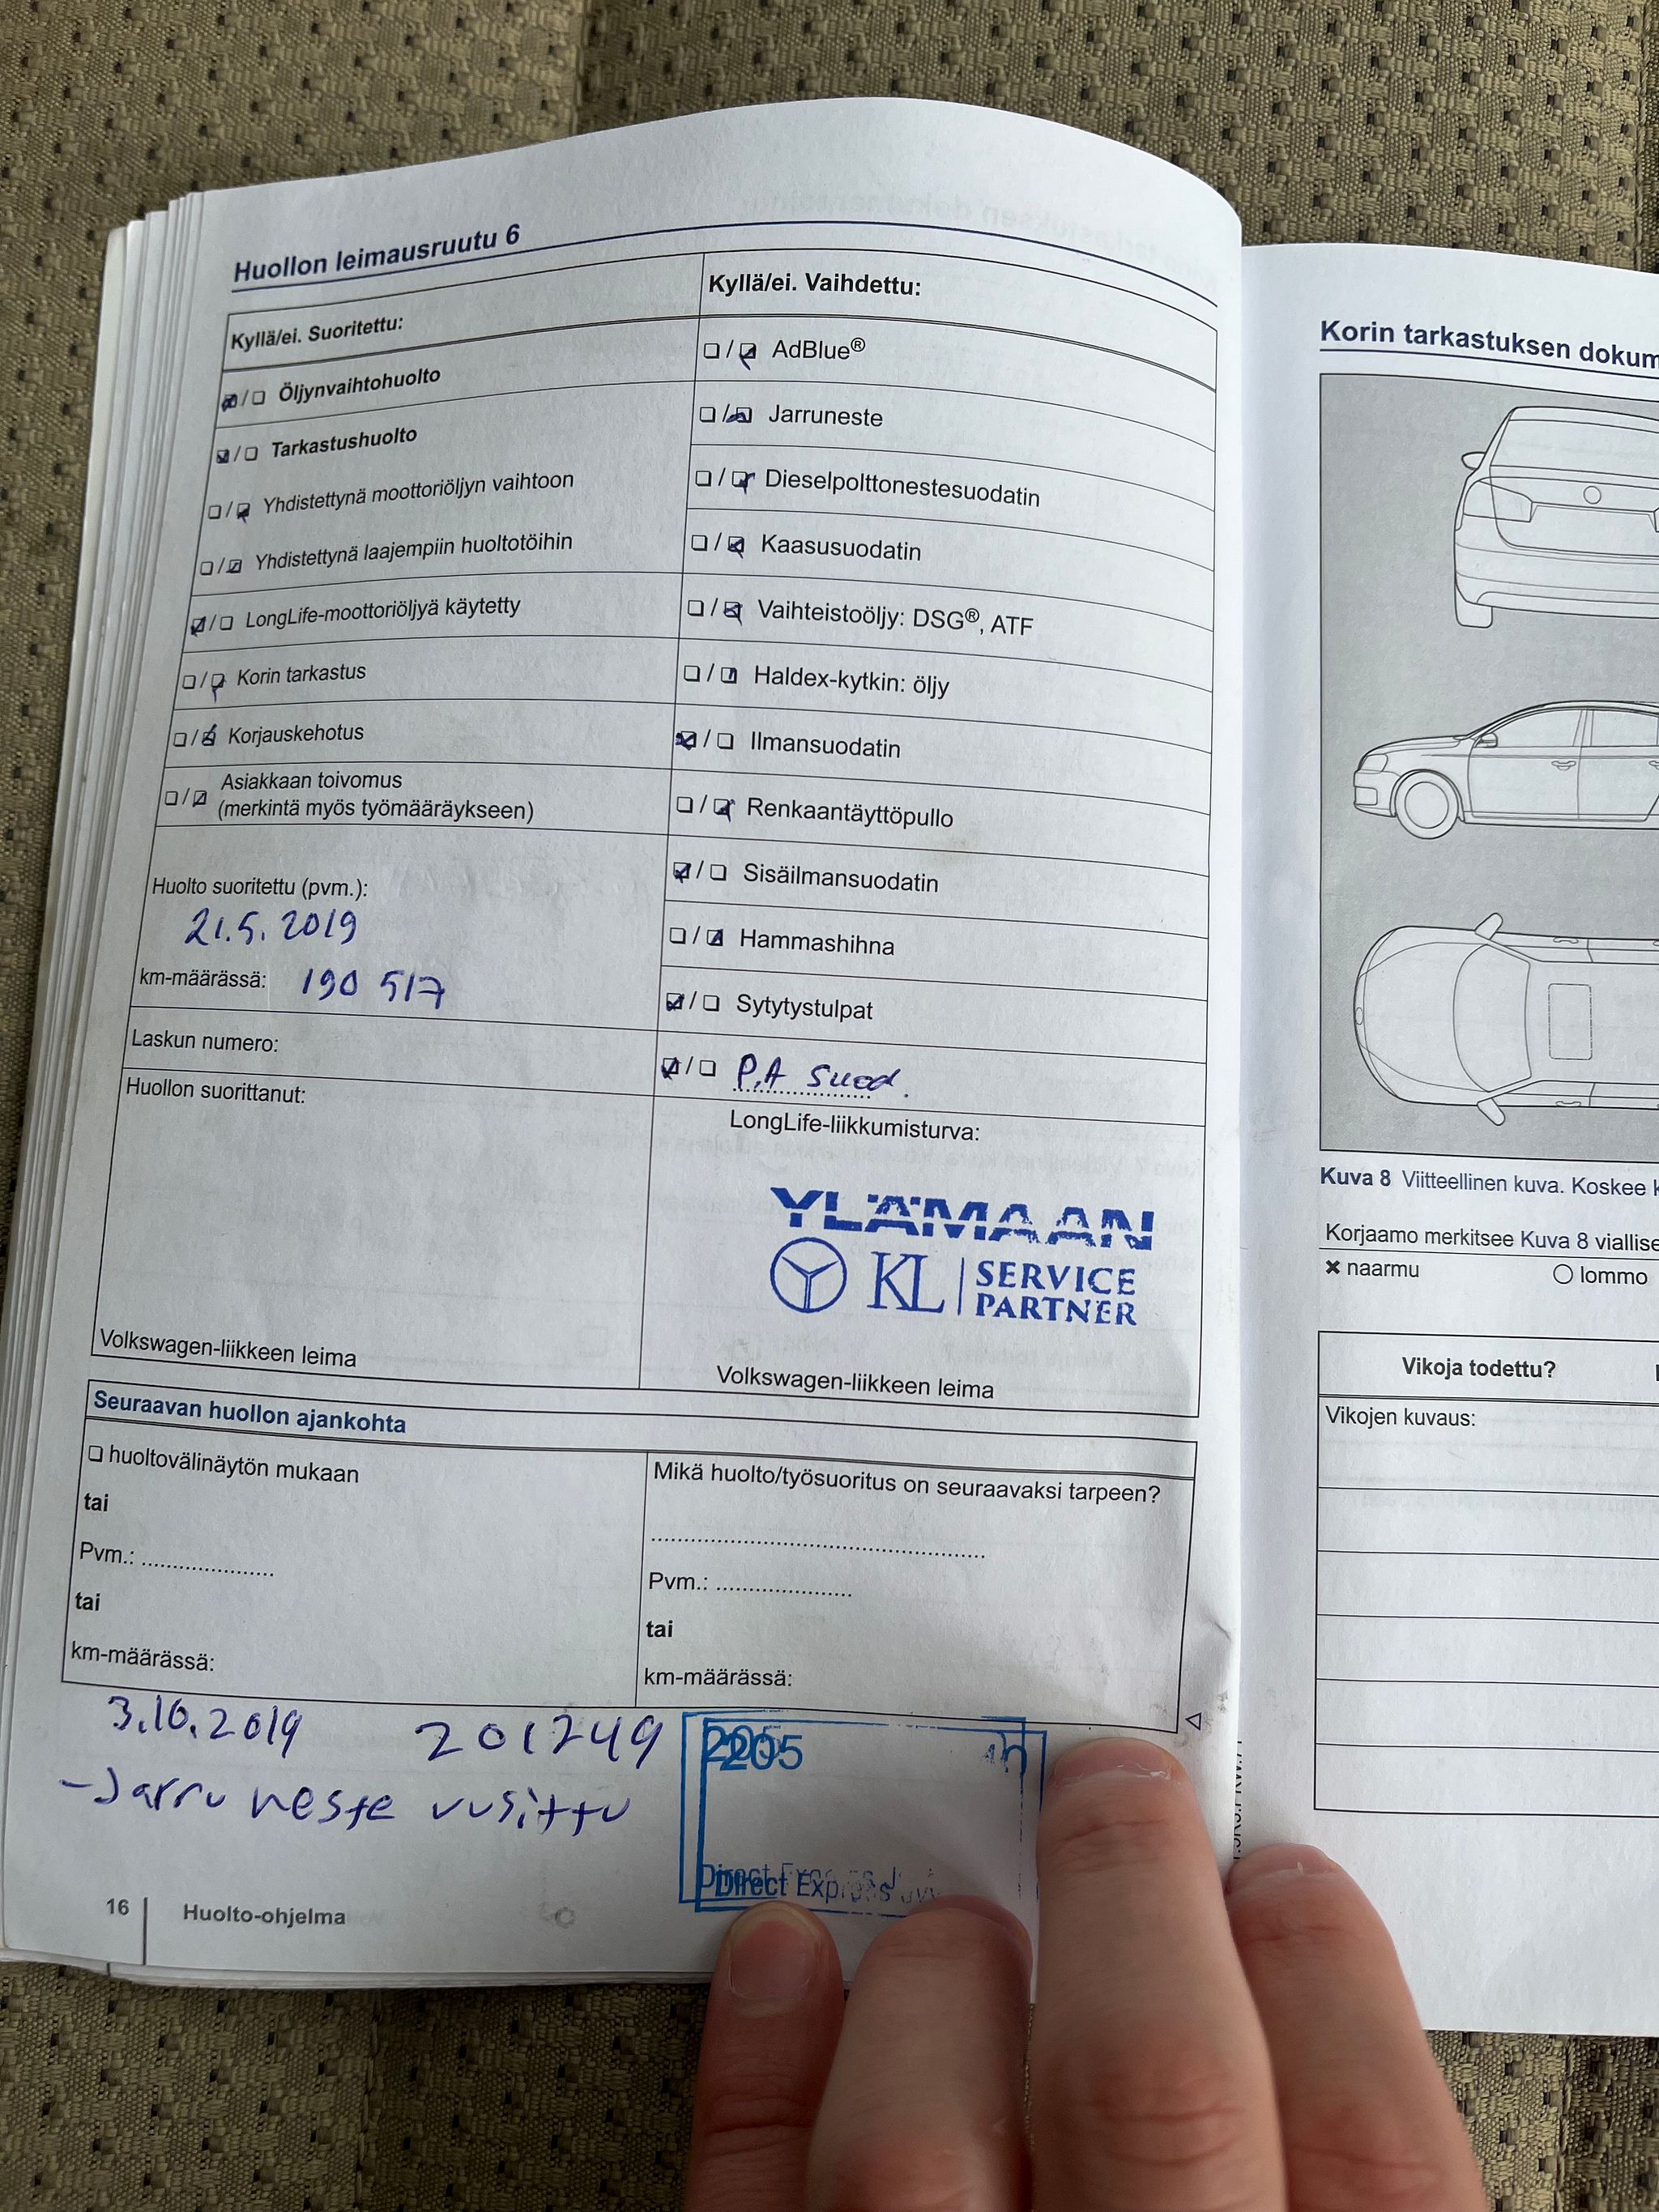 Huollon leimausruutu 6
Kyllä/ei. Suoritettu:
Öljynvaihtohuolto
Tarkastushuolto
Yhdistettynä moottoriöljyn vaihtoon
Yhdistettynä laajempiin huoltotöihin
LongLife-moottoriöljyä käytetty
Korin tarkastus
Korjauskehotus
Asiakkaan toivomus
(merkintä myös työmääräykseen)
Huolto suoritettu (pvm.):
21.5.2019
km-määrässä: 190 517
Laskun numero:
Huollon suorittanut:
Volkswagen-liikkeen leima
Kyllä/ei. Vaihdettu:
AdBlue®
Jarruneste
Dieselpolttonestesuodatin
Kaasusuodatin
Vaihteistoöljy: DSG®, ATF
Haldex-kytkin: öljy
Ilmansuodatin
Renkaantäyttöpullo
Sisäilmansuodatin
Hammashihna
Sytytystulpat
P.A suod.
LongLife-liikkumisturva:
YLÄMAAN
KL SERVICE
PARTNER
Volkswagen-liikkeen leima
Seuraavan huollon ajankohta
huoltovälinäytön mukaan
tai
Pvm.:
tai
km-määrässä:
Mikä huolto/työsuoritus on seuraavaksi tarpeen?
Pvm.:
tai
km-määrässä:
3.10.2019 201249
-Jarru neste uusittu
2205
Direct Express
16 Huolto-ohjelma
Korin tarkastuksen
Kuva 8 Viitteellinen kuva. Koskee
Korjaamo merkitsee Kuva 8
naarmu lommo
Vikoja todettu?
Vikojen kuvaus: